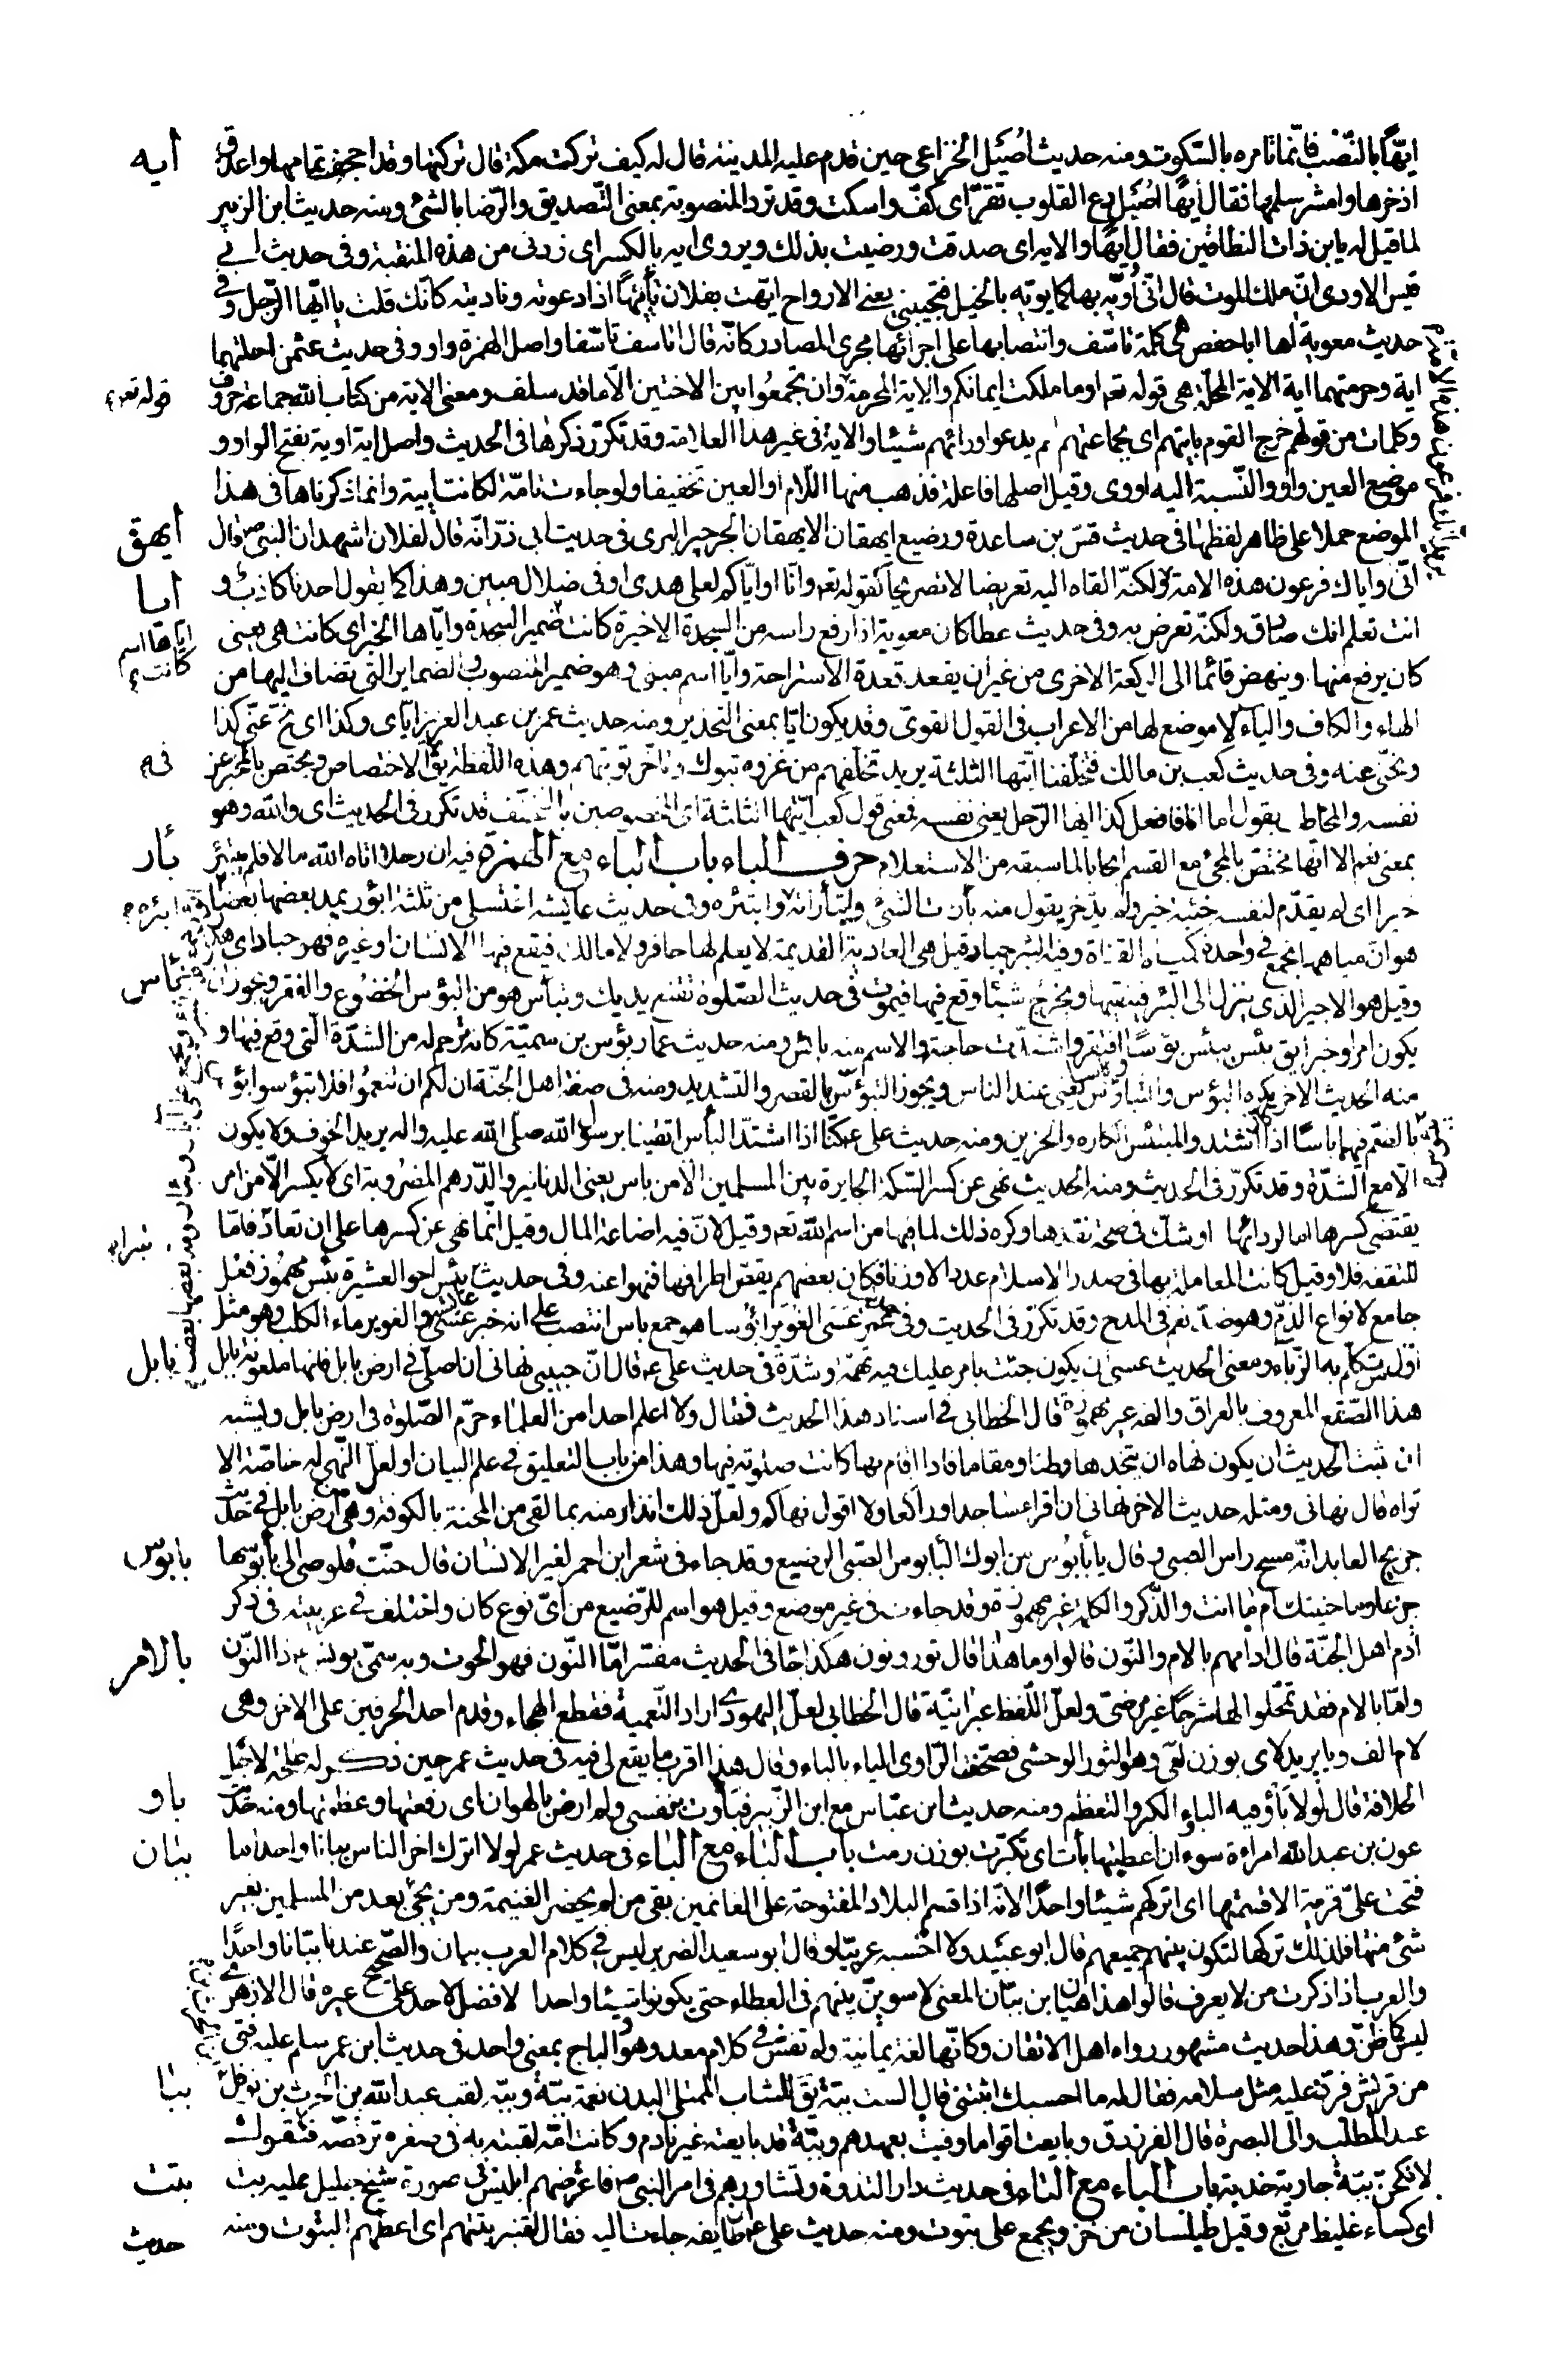 ايهًا بالنّصب فانّما تامره بالسّكوت ومنه حديث اُصَيْل الخزاعي حين قدم عليه المدينة قال له كيف تركت مكة قال تركتها وقد احجن ثمامها واعذق
ايه
اذخرها وامشر سلمها فقال ايهًا اُصَيْل دع القلوب تقرّ اى كفّ واسكت وقد ترد المنصوبة بمعنى التّصديق والرّضا بالشئ ومنه حديث ابن الزبير
لما قيل له يا بن ذات النطاقين فقال ايهًا والاله اى صدقت ورضيت بذلك ويروى ايه بالكسر اى زدنى من هذه المنقبة وفى حديث ابى
قيس الاودى انّ ملك الموت قال انّى اُؤيّه بها كما يويّه بالخيل فتجيبنى يعنى الارواح ايّهت بفلان تأييهًا اذا دعوته وناديته كانّك قلت يا ايّها الرّجل وفى
حديث معوية لها ابا حفص هى كلمة تاسّف وانتصابها على اجرائها مجرى المصادر كانّه قال اتاسّف تاسّفا واصل الهمزة واو وفى حديث عثمن احلتهما
اية وحرمتهما اية الاية المحلّة هى قوله تعه او ما ملكت ايمانكم والاية المحرمة وان تجمعُوا بين الاختين الّا ما قد سلف ومعنى الاية من كتاب الله جماعة حروف
قوله تعه
وكلمات من قولهم خرج القوم بايتهم اى بجماعتهم لم يدعوا ورائهم شيئا والاية فى غير هذا العلامة وقد تكرّر ذكرها فى الحديث واصل اية اوية بفتح الواو و
موضع العين واو والنّسبة اليه اووى وقيل اصلها فاعلة فذهب منها اللّام او العين تخفيفا ولو جاءت تامّة لكانت ايية وانما ذكرناها فى هذا
الموضع حملا على ظاهر لفظها فى حديث قسّ بن ساعدة ورضيع ايهقان الايهقان الجرجير البرى فى حديث ابى ذرّ انّه قال لفلان اشهد ان النبى ص قال
ايهق
انّى واياك فرعون هذه الامة ولكنّه القاه اليه تعريضا لا تصريحا كقوله تعه وانّا او ايّاكم لعلى هدى او فى ضلال مبين وهذا كما يقول احدنا كاذبٌ و
ايا
انت تعلم انك صادق ولكنّه تعرض به وفى حديث عطا كان معوية اذا رفع راسه من السجدة الاخيرة كانت ضمير السجدة وايّاها الخبر اى كانت هى يعنى
اياها اسم كانت
كان يرفع منها وينهض قائما الى الركعة الاخرى من غير ان يقعد قعدة الاستراحة وايّا اسم مبنى وهو ضمير المنصوب والضماير التى تضاف اليها من
الهاء والكاف والياء لا موضع لها من الاعراب فى القول القوىّ وقد يكون ايّا بمعنى التحذير ومنه حديث عمر بن عبد العزيز ايّاى وكذا اى نحّ عنّى كذا
ونحّنى عنه وفى حديث كعب بن مالك فتخلّفنا ايّتها الثلثة يريد تخلفهم من غزوه تبوك وتاخّر توبتهم وهذه اللّفظة يق فى الاختصاص ويختص بالمخبر عن
نفسه والمخاطب يقول اما انا فافعل كذا ايها الرّجل يعنى نفسه فمعنى قول كعب ايّتها الثلثة اى المخصوصين بالتخلّف قد تكرر فى الحديث اى والله وهو
بمعنى نعم الا انّها تختصّ بالمجئ مع القسم ايجابا لما سبقه من الاستعلام حرف الباء باب الباء مع الهمزة فيه ان رجلا اتاه الله مالا فلم يبتئر
بأر
خيرا اى لم يقدّم لنفسه خبيئة خير ولم يدّخر يقول منه بأرت الشئ وابتأرته وابتئره وفى حديث عايشه اغتسلى من ثلثة ابؤر يمد بعضها بعضًا
هو ان مياهها تجتمع فى واحدة كمياه القناة وفيه البئر جبار قيل هى العادية القديمة لا يعلم لها حافر ولا مالك فيقع فيها الانسان او غيره فهو جبار اى هدر
وقيل هو الاجير الذى ينزل الى البئر فينقيها ويخرج شيئا وقع فيها فيموت فى حديث الصّلوة تقنع يديك وتبأس هو من البؤس الخضوع والفقر ويجوز ان
بأس
يكون امرا وخبرا يق بئس يبئس بؤسًا وافتقر واشتدّت حاجته والاسم منه بائس ومنه حديث عمار بؤس بن سميّة كانه ترحم له من الشدّة الّتى وقع فيها و
منه الحديث الاخر يكره البؤس والتباؤس يعنى عند الناس ويجوز التبؤس بالقصر والتشديد ومنه فى صفة اهل الجنّة ان لكم ان تنعمُوا فلا تبؤسوا بؤ
بالضم فيهما باسًا اذا اشتد والمبتئس الكاره والحزين ومنه حديث على ع كنّا اذا اشتدّ البأس اتقينا برسول الله صلّى الله عليه واله يريد الخوف ولا يكون
الّا مع الشدّة وقد تكرّر فى الحديث ومنه الحديث نهى عن كسر السّكة الجايزة بين المسلمين الّا من باس يعنى الدنانير والدّرهم المضروبة اى لا يكسر الّا من امر
يقتضى كسرها اما لردائتها او شكّ فى صحة نقدها وكره ذلك لما فيها من اسم الله تعه وقيل لانّ فيه اضاعة المال وقيل انّما نهى عن كسرها على ان تعاد تبرا فامّا
للنفقة فلا وقيل كانت المعاملة بها فى صدر الاسلام عددا لا وزنا فكان بعضهم يقص اطرافها فنهوا عنه وفى حديث بئس اخو العشيرة بئس مهموز فعل
جامع لانواع الذّمّ وهو ضدّ نعم فى المدح وقد تكرّر فى الحديث وفى حديث عمر عسَى الغُوَير ابؤُسا هو جمع باس انتصب على انه خبر عسى والغوير ماء لكلب وهو مثل
اوّل من تكلّم به الزبّاء ومعنى الحديث عسى ان يكون جئت بامر عليك فيه تهمة وشدّة فى حديث على ع قال انّ حبيبى نهانى ان اصلّى فى ارض بابل فانها ملعونة بابل
بابل
هذا الصّقع المعروف بالعراق والفه غير مهموزة قال الخطابى فى اسناد هذا الحديث فقال ولا اعلم احدا من العلماء حرّم الصّلوة فى ارض بابل ويشبه
ان ثبت الحديث ان يكون نهاه ان يتخذها وطنا ومقاما فاذا اقام بها كانت صلوته فيها وهذا من باب التعليق فى علم البيان او لعلّ النّهى له خاصّة الا
تراه قال نهانى ومثله حديث الاخر نهانى ان اقرا ساجدا وراكعا ولا اقول نهاكم ولعلّ ذلك انذار منه بما لقى من المحنة بالكوفة وهى من ارض بابل فى حديث
جريج العابد انّه مسح راس الصبى وقال يا بابُوس من ابوك البابوس الصبّى الرضيع وقد جاء فى شعر ابن احمر لغير الانسان قال حنّت قلوصى الى بابوسها
بابوس
جزعا وما حنينك ام ما انت والذّكر والكلمة غير مهموزة وقد جاءت فى غير موضع وقيل هو اسم للرّضيع من اىّ نوع كان واختلف فى عربيته فى ذكر
اُدم اهل الجنّة قال ادامهم بالام والنّون قالوا وما هذا قال ثور ونون هكذا جا فى الحديث مفسّرا امّا النّون فهو الحوت وبه سمّى يونس ع ذا النّون
بالام
وامّا بالام فقد تمحّلوا لها شرحًا غير مرضىّ ولعلّ اللّفظ عبرانيّة قال الخطابى لعلّ اليهودى اراد التّعمية فقطع الهجاء وقدم احد الحرفين على الاخر وهى
لام الف ويا يريد لاى بوزن لعى وهو الثور الوحشى فصحّف الرّاوى الياء بالباء وقال هذا اقرب ما يقع لى فيه فى حديث عمر حين ذكر له طلحة لاجل
الخلافة قال لولا بأو فيه الباو الكبر والتعظم ومنه حديث ابن عبّاس مع ابن الزّبير فبأوت بنفسى ولم ارض بالهوان اى رفعتها وعظمتها ومنه حديث
باو
عون بن عبد الله امراءة سوء ان اعطيتها بأت اى تكبّرت بوزن رمت باب الباء مع الباء فى حديث عمر لولا ان اترك اخر الناس ببانا واحدا ما
ببان
فتحت علىّ قرية الا قسمتها اى اتركهم شيئا واحدًا لانّه اذا قسم البلاد المفتوحة على الغانمين بقى من لم يحضر الغنيمة ومن يجئ بعد من المسلمين بغير
شئ منها فلذلك تركها لتكون بينهم جميعهم قال ابو عبيد ولا احسبه عربيّا وقال ابو سعيد الضرير ليس فى كلام العرب ببان والصّحيح عندنا بيّانا واحدًا
والعرب اذا ذكرت من لا يعرف قالوا هذا هيّان ابن بيّان المعنى لاسوينّ بينهم فى العطاء حتى يكونوا شيئا واحدا لا فضل لاحد على غيره قال الازهرى
ليس كما ظنّ وهذا حديث مشهور رواه اهل الاتقان وكانّها لغة يمانية ولم تفش فى كلام معد وهو والباج بمعنى واحد فى حديث ابن عمر سلم عليه فتى
من قريش فردّ عليه مثل سلامه فقال له ما احسبك اثبتنى قال الست ببّة يق للشاب الممتلى البدن نعمة ببّة وببّه لقب عبد الله بن الحرث بن نوفل بن
ببا
عبد المطلب والى البصرة قال الفرزدق وبايعت اقواما وفيت بعهدهم وببّة قد بايعته غير نادم وكانت امّه لقبته به فى صغره ترقصه فتقول
لانكحنّ ببّة جارية خدبة باب الباء مع التاء فى حديث دار الندوة وتشاورهم فى امر النبى ص فاعترضهم ابليس فى صورة شيخ جليل عليه بت
بتت
اى كساء غليظ مربّع وقيل طيلسان من خز ويجمع على بتوت ومنه حديث على ع انّ طايفه جاءت اليه فقال لقنبر بتتهم اى اعطهم البتوت ومنه
حديث